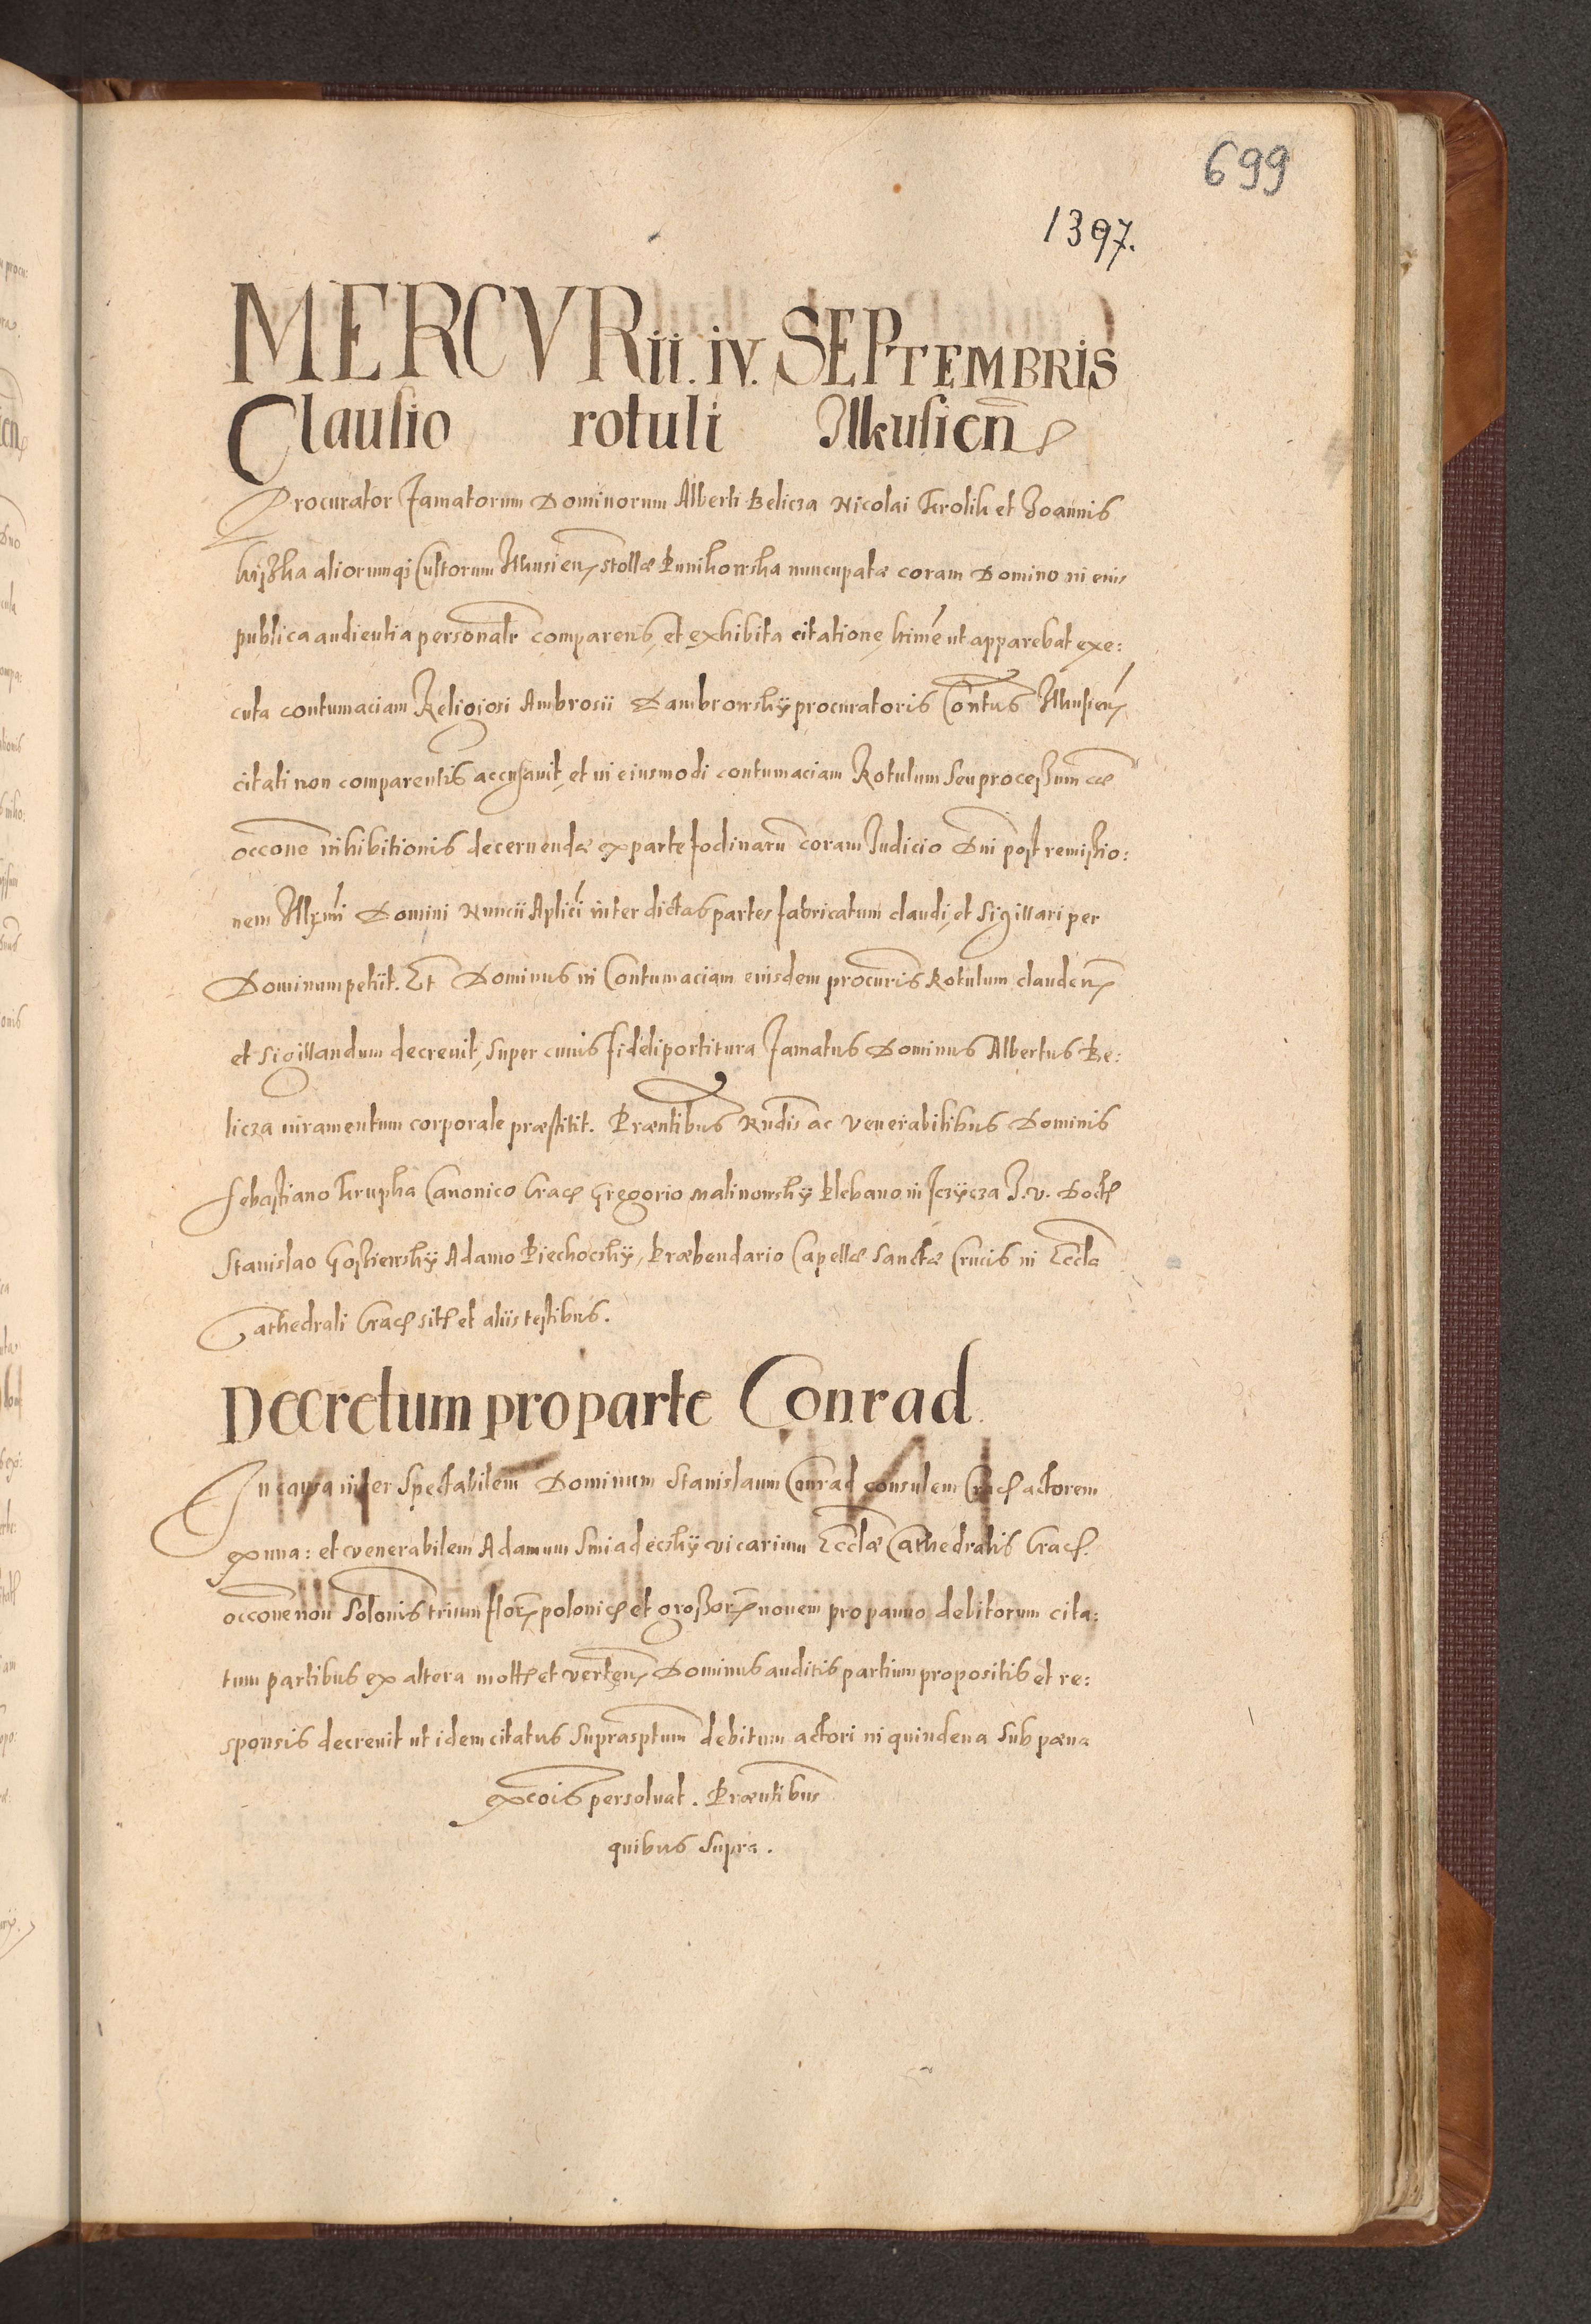 699
1397.
MERCVRii. iv. SEPTEMBRIS
Clausio rotuli Ilkusien̄
Procurator famatorum Dominorum Alberti Belicza Nicolai Krolik et Joannis
aliorumqȝ Cultorum Ilkusien̄ stollæ Punikowska nuncupatæ coram Domino in eius
publica audientia personalr̄ comparens, et exhibita citatione, ut apparebat exe:
cuta contumaciam Religiosi Ambrosii Dambrowsky procuratoris Con̄tus Ilkusien̄
citati non comparentis accusauit, et in eiusmodi contumaciam Rotulum seu processum
occōne inhibitionis decernendæ ex parte fodinarū coram Iudicio Dn̄i post remissio:
nem Illrm̄i Domini Nuncii Aplici inter dictas partes fabricatum claudi, et sigillari per
Dominum petiit. Et Dominus in Contumaciam eiusdem procur̄is Rotulum clauden̄
et sigillandum decreuit, super cuius fideli portitura famatus Dominus Albertus Be:
licza iuramentum corporale præstitit. Præn̄tibus Rn̄dis ac Venerabilibus Dominis
Sebastiano Krupka Canonico Crac Gregorio Malinowsky Plebano in J. V. Doct
Stanislao Adamo Piechoczky, Præbendario Capellæ Sanctæ Crucis in Eccl̄a
Cathedrali Crac sit et aliis testibus.
Decretum pro parte Conrad
In causa inter Spectabilem Dominum Stanislaum Conrad consulem Crac actorem
ex una: et venerabilem Adamum Smiadeczky vicarium Eccl̄æ Cathedralis Crac.
occōne non Sol̄onis trium flor̄ polonic et grossor̄ nouem pro panno debitorum cita:
tum partibus ex altera mott et verten̄ Dominus auditis partium propositis et re:
sponsis decreuit ut idem citatus suprasptum̄ debitum actori in quindena sub pæna
excōis persoluat. Præntibus
quibus supra.